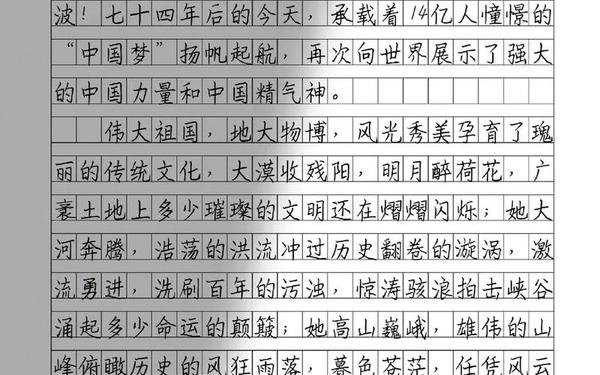 波！七十四年后的今天，承载着14亿人憧憬的
“中国梦”扬帆起航，再次向世界展示了强大
的中国力量和中国精气神。
伟大祖国，地大物博，风光秀美孕育了瑰
丽的传统文化，大漠收残阳，明月醉荷花，广
袤土地上多少璀璨的文明还在熠熠闪烁；她大
河奔腾，浩荡的洪流冲过历史翻卷的漩涡，激
流勇进，洗刷百年的污浊，惊涛骇浪拍击峡谷
涌起多少命运的颠簸；她高山巍峨，雄伟的山
峰俯瞰历史的风狂雨落，暮色苍茫，任凭风云